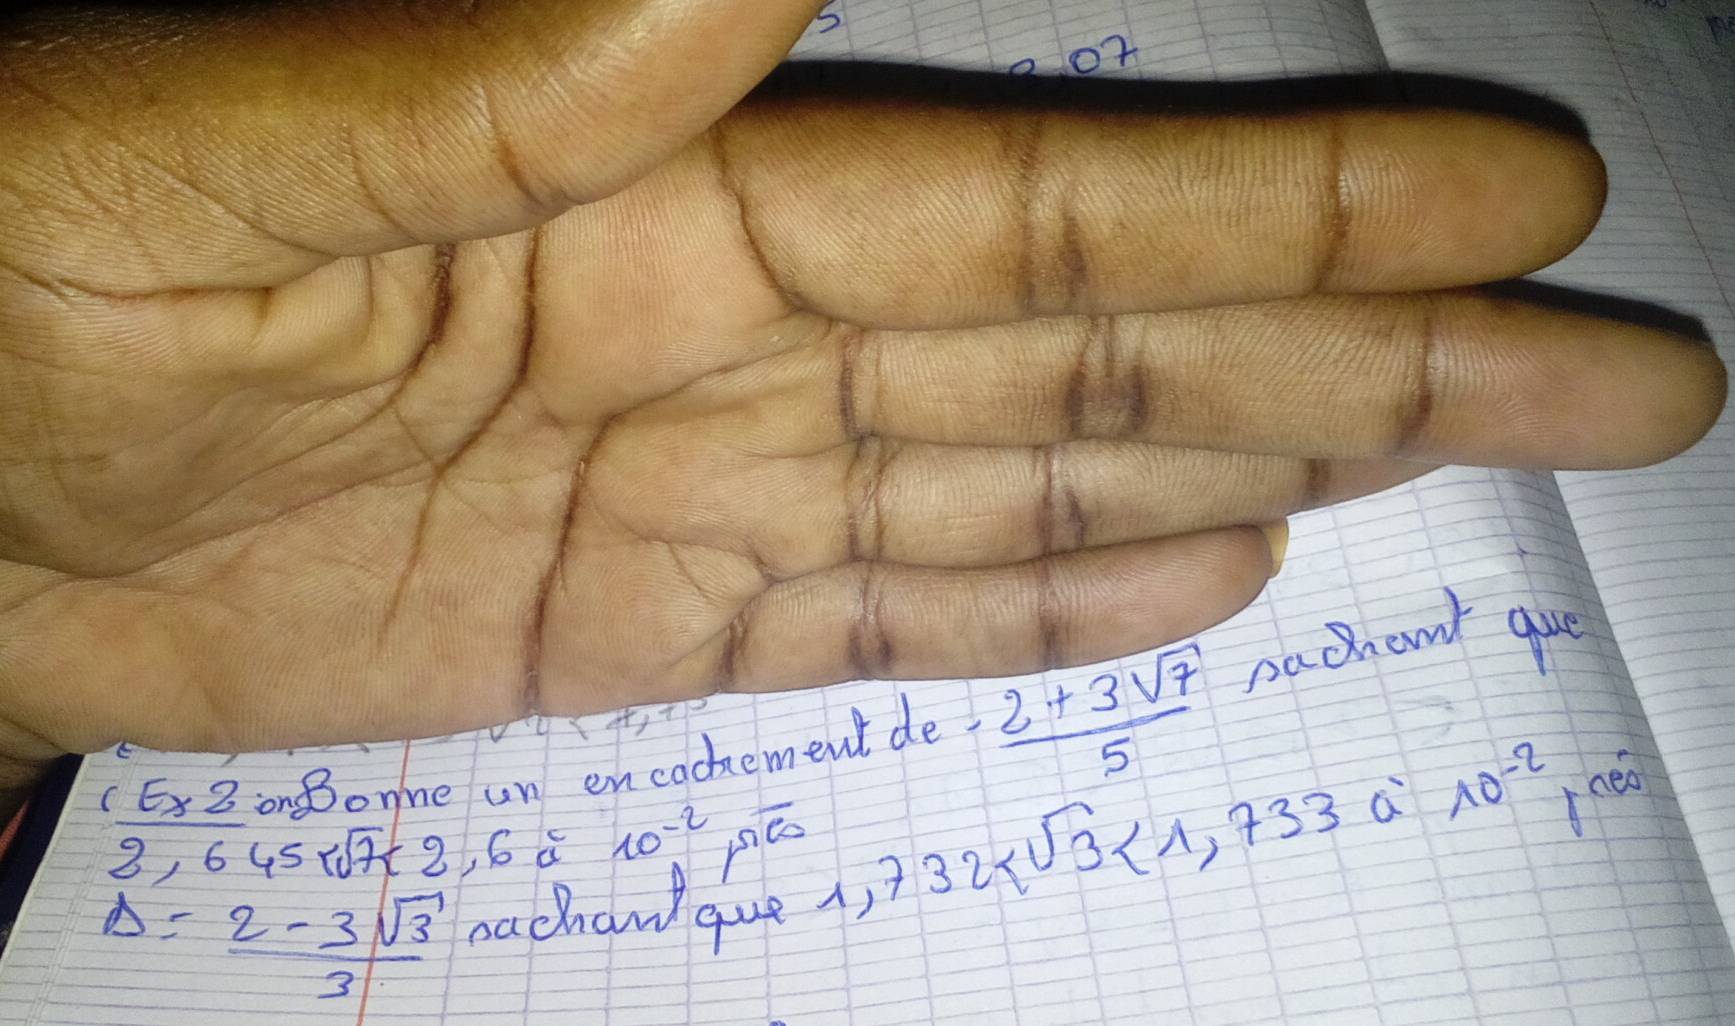 5
8,07
Ex 2 on Donne un encadrement de - 2 + 3√7 / 5 sachant que
2,645<√7<2,6 à 10⁻² près
Δ = 2 - 3√3 / 3 sachant que 1,732<√3<1,733 à 10⁻² près